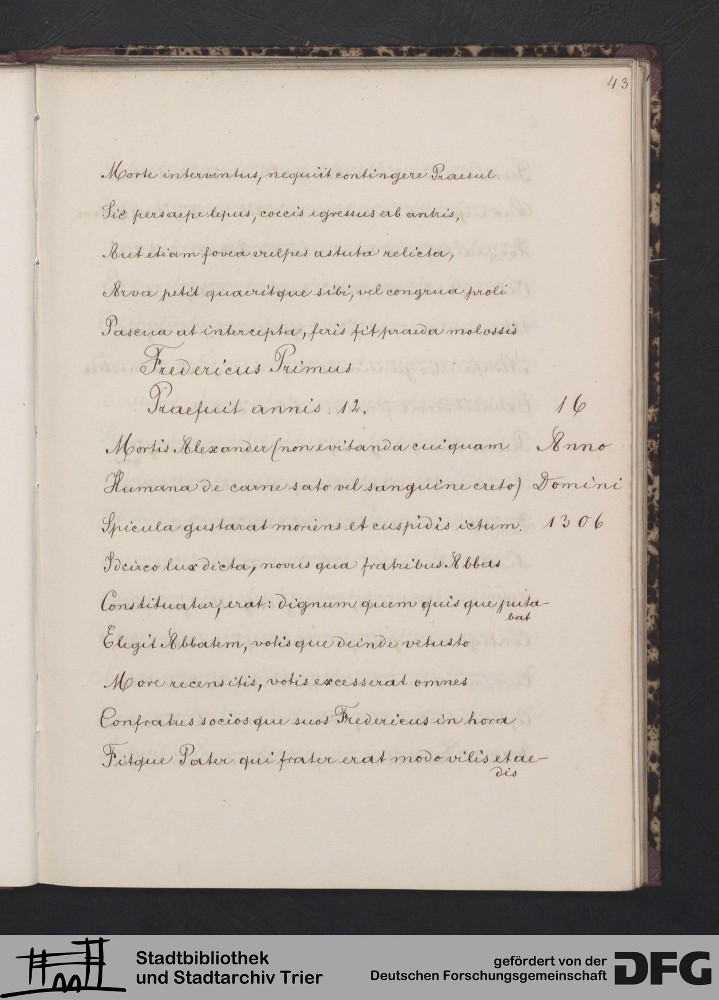 43
Morte interventus, nequiit contingere Praesul.
Sic persaepe lepus, coecis egressus ab antris,
Aut etiam fovea vulpes astuta relicta,
Arva petit quaeritque sibi, vel congrua proli
Pascua at intercepta, feris fit praeda molossis
Fredericus Primus
Praefuit annis 12. 16
Mortis Alexander (non evitanda cuiquam Anno
Humana de carne sato vel sanguine creto) Domini
Spicula gustarat moriens et cuspidis ictum. 1306
Idcirco lux dicta, novus qua fratribus Abbas
Constituatur, erat: dignum quem quisque puta-
bat
Elegit Abbatem, votisque deinde vetusto
More recensitis, votis excesserat omnes
Confratres sociosque suos Fredericus in hora
Fitque Pater qui frater erat modo vilis et ae-
dis
Stadtbibliothek
und Stadtarchiv Trier
gefördert von der
Deutschen Forschungsgemeinschaft
DFG